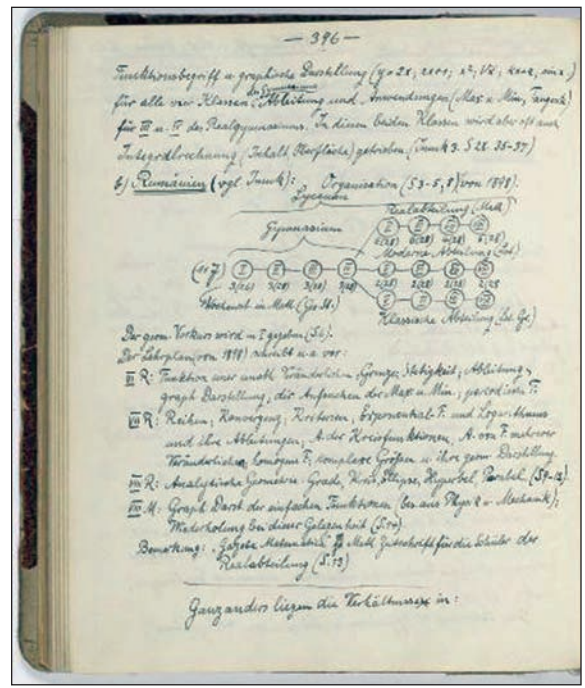 — 396 —
Funktionsbegriff u. graphische Darstellung (y = 2x; 2x+1; x²; √x; sin x.)
für alle vier Klassen, Ableitung und Anwendungen (Max. u. Min., Tangente)
für III u. IV des Realgymnasiums. In diesen beiden Klassen wird aber oft auch
Integralrechnung (Inhalt, Oberfläche) getrieben. (Imuk 3. S 28. 35-37)
b) Rumänien (vgl. Imuk): Organisation (S 3-5, 8) von 1898).
Lyceum
Realabteilung (Math)
Gymnasium
V VI VII VIII
Moderne Abteilung (Lat)
I II III IV V VI VII VIII
3(28) 3(28)
2(28) 2(28) 2(28) 2(28)
Wochenst. in Math. (Ges. St.)
Klassische Abteilung (Lat. Gr.)
Der geom. Vorkurs wird in I gegeben (S 6).
Der Lehrplan (von 1898) schreibt u. a. vor:
VI R: Funktion einer unabh. Veränderlichen, Grenze, Stetigkeit, Ableitung,
graph. Darstellung, der Max. u. Min., periodische F.
VII R: Reihen, Konvergenz, Kriterien, Exponential-F. und Logarithmus
und ihre Ableitungen, A. der Kreisfunktionen, A. von F. mehrerer
Veränderlicher, homogene F., complexe Größen u. ihre geom. Darstellung.
VIII R: Analytische Geometrie: Grade, Kreis, Ellipse, Hyperbel, Parabel. (S 9-13).
VIII M: Graph. Darst. der einfachen Funktionen (bes. aus Physik u. Mechanik);
Wiederholung bei dieser Gelegenheit (S. 14).
Bemerkung: „Gazeta Matematica" Math. Zeitschrift für die Schüler der
Realabteilung (S. 13)
Ganz anders liegen die Verhältnisse in: